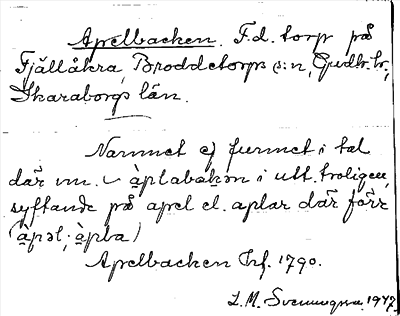 Apelbacken. F.d. torp på
Fjällåkra, Broddetorps s:n, Gudh. hd,
Skaraborgs län.
Namnet ej funnet i tal
där un. àplabakən i utt. troligen
syftande på apel el. aplar där förr
(àpəl; àpla)
Apelbacken Jrf. 1790.
L. M. Svennungsson 1947.